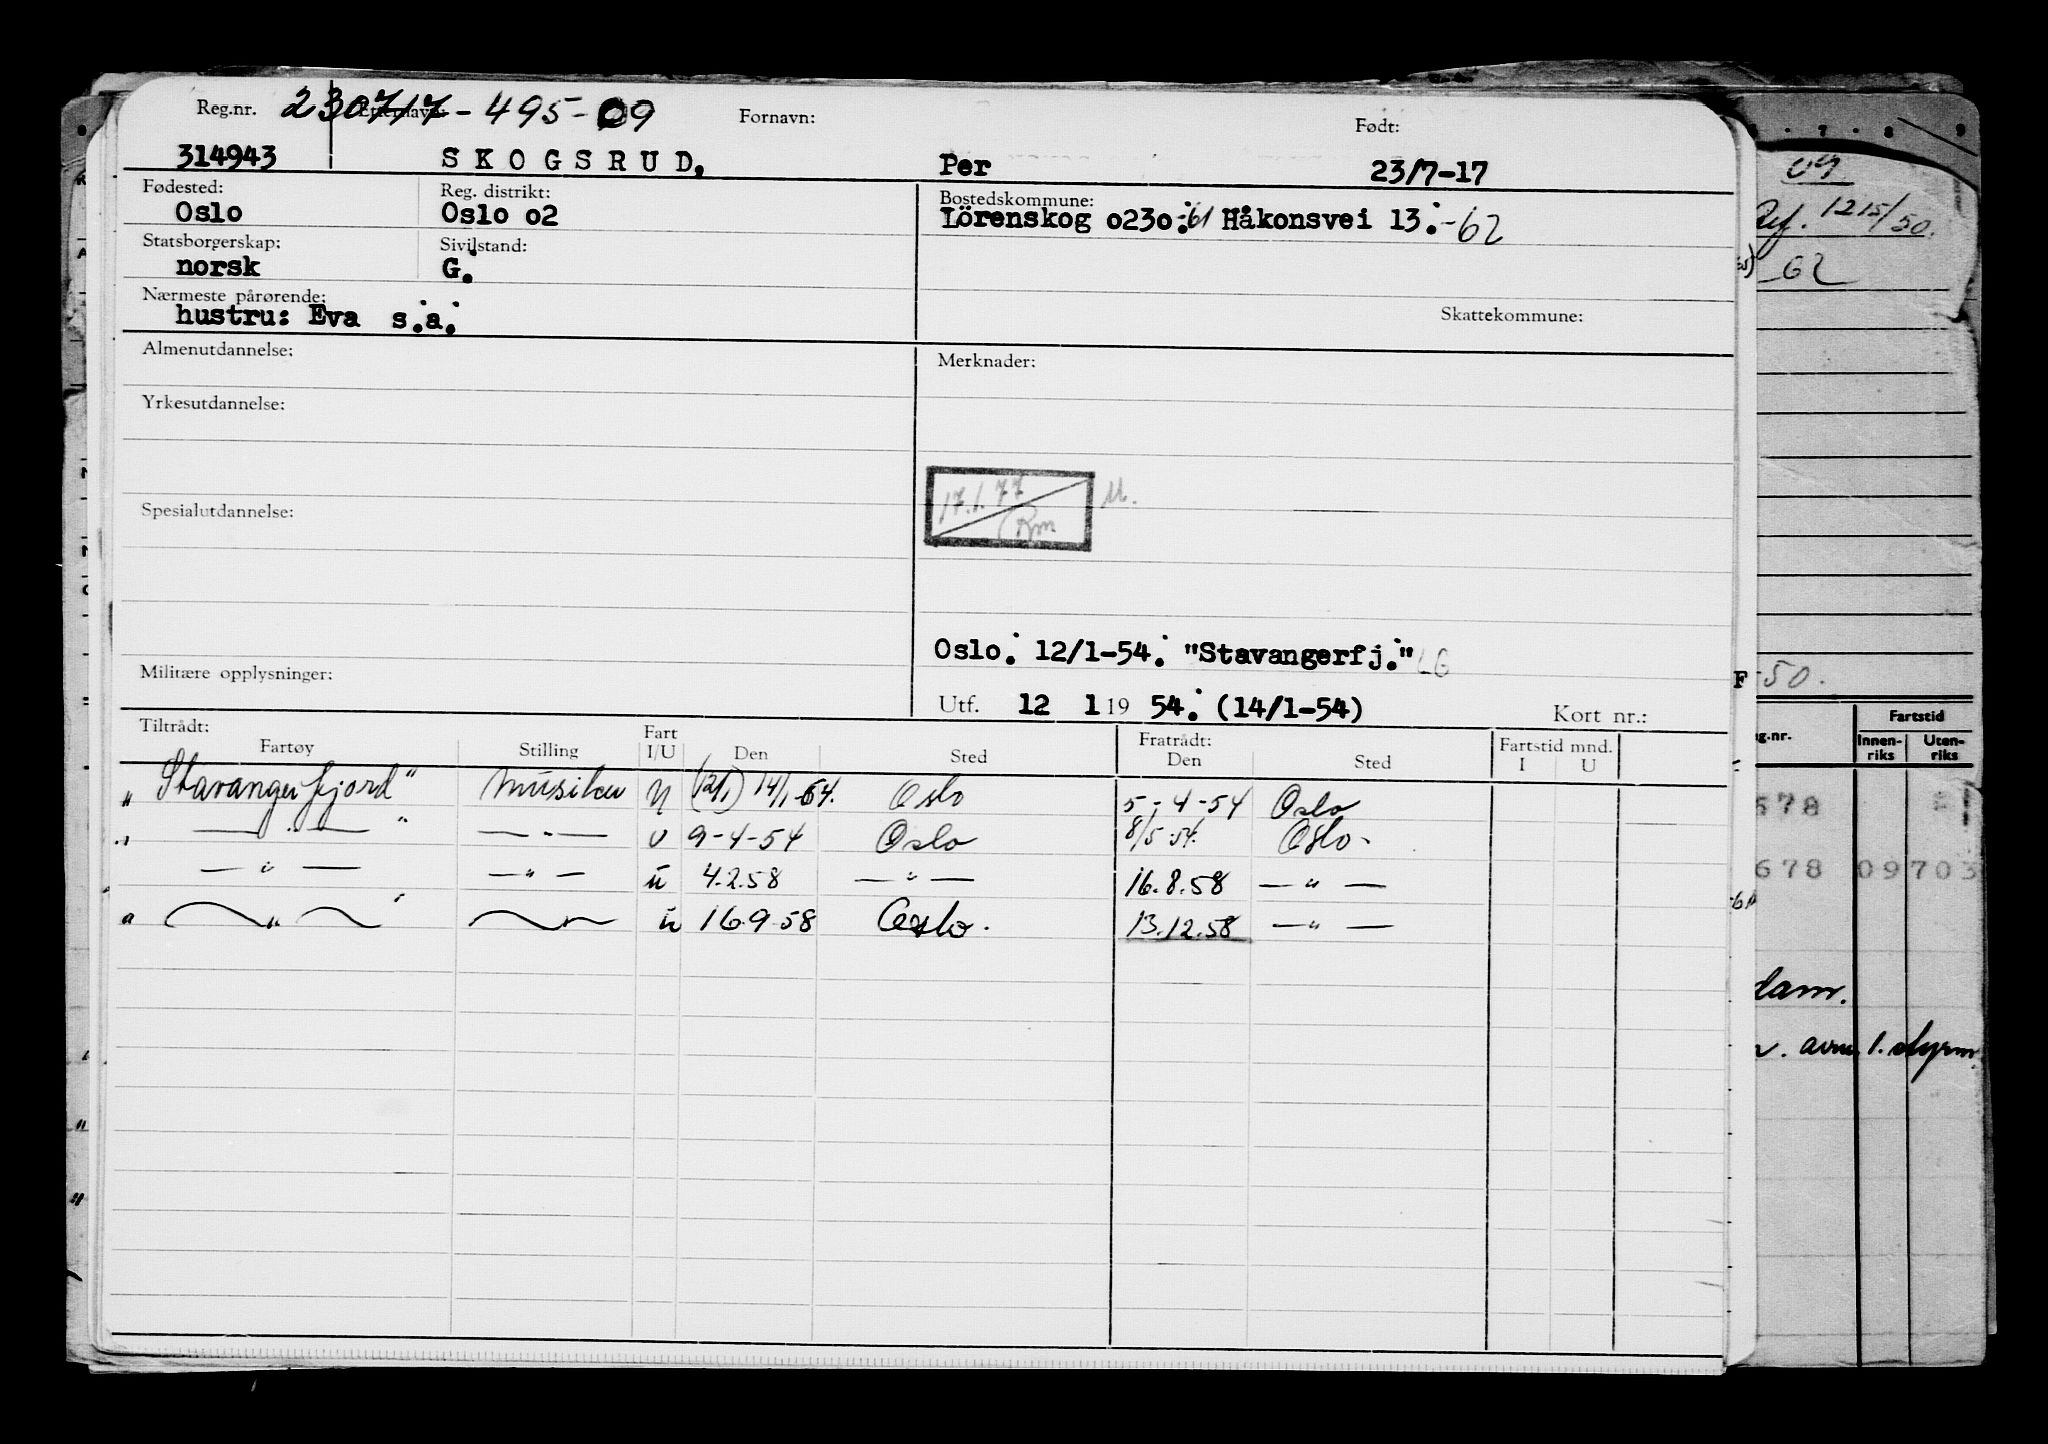 Reg.nr. 230717-495-09 Etternavn: Fornavn: Født:
314943 SKOGSRUD, Per 23/7-17
Fødested: Reg. distrikt: Bostedskommune:
Oslo Oslo o2 Lörenskog o23o.-61 Håkonsvei 13.-62
Statsborgerskap: Sivilstand:
norsk G.
Nærmeste pårørende: Skattekommune:
hustru: Eva s.a.
Almenutdannelse: Merknader:
Yrkesutdannelse:
17.1.77 M.
Rm
Spesialutdannelse:
Oslo. 12/1-54. "Stavangerfj." LG
Militære opplysninger:
Utf. 12 1 19 54. (14/1-54) Kort nr.:
Tiltrådt: Fart Fratrådt: Fartstid mnd.
Fartøy Stilling I/U Den Sted Den Sted I U
"Stavangerfjord" Musiker U (12/1) 14/1-54. Oslo 5-4-54 Oslo
" — " — " — " — U 9-4-54 Oslo 8/5-54. Oslo.
— " — — " — u 4.2.58 — " — 16.8.58 — " —
" — " — " — " — u 16.9.58 Oslo. 13.12.58 — " —
7 8 9
09
Ref. 1215/50.
62
F -50.
Fartstid
g.nr. Innen-riks Uten-riks
578
678 09703
dam.
avm. 1. styrm.